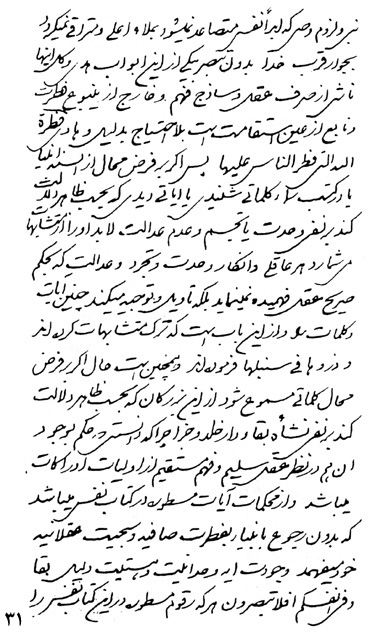 نبی و لزوم وصی که ابدا نفس متصاعد نمیشود بملاء اعلی و متراقی نمیگردد
بجوار قرب خدا بدون تبصر بیکی از این ابواب هدی و کل اینها
ناشی از صرف عقل و ساذج فهم و خارج از ینبوع فطرت
و نابع از عین استقامت است بلا احتیاج بدلیل و هادی فطرة
الله التی فطر الناس علیها پس اگر بر فرض محال از السنه انبیا
یا در کتب کلماتی شنیدی یا آیاتی دیدی که بحسب ظاهر دلالت
کند بر نفی وحدت یا تجسم و عدم عدالت لابد او را از متشابهات
می شمارد هر عاقل و انکار وحدت و تجرد و عدالت که بحکم
صریح عقل فهمیده نمینماید بلکه تاویل و توجیه میکند چنین آیات
و کلمات و از این باب است که ترک متشابهات کردن اند
و ذروها فی سنبلها فرموند و همچنین است حال اگر بر فرض
محال کلماتی مسموع شود از این بزرگان که بحسب ظاهر دلالت
کند بر نفی نشأه بقا و دار خلد و جزا چرا که دانستی که حکم بوجود
آن هم در نظر عقل سلیم و فهم مستقیم از اولیات ادراکات
میباشد و از محکمات آیات مسطوره در کتاب نفس میباشد
که بدون رجوع بانبیا بفطرت صافیه و سجیت عقلانیه
خود میفهمد وجودت و وحدانیت و دلیل بقا
و فی انفسکم افلا تبصرون هر که رقوم مسطوره در این کتاب نفس را
۳۱